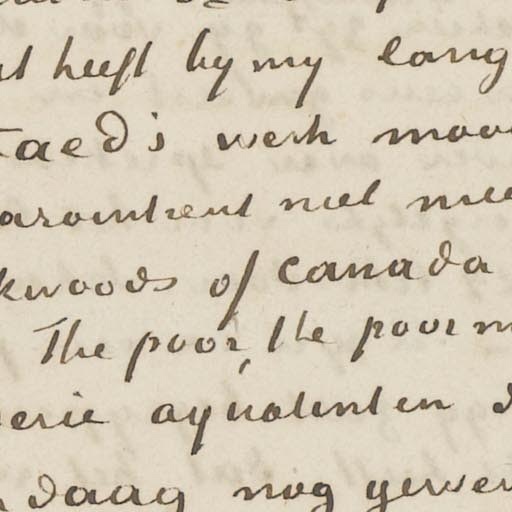 heeft by my lang
Faed's werk mooi
daaromtrent niet mee
kwoods of Canada
The poor, the poor m
serie aquatinten d
daag nog geweest